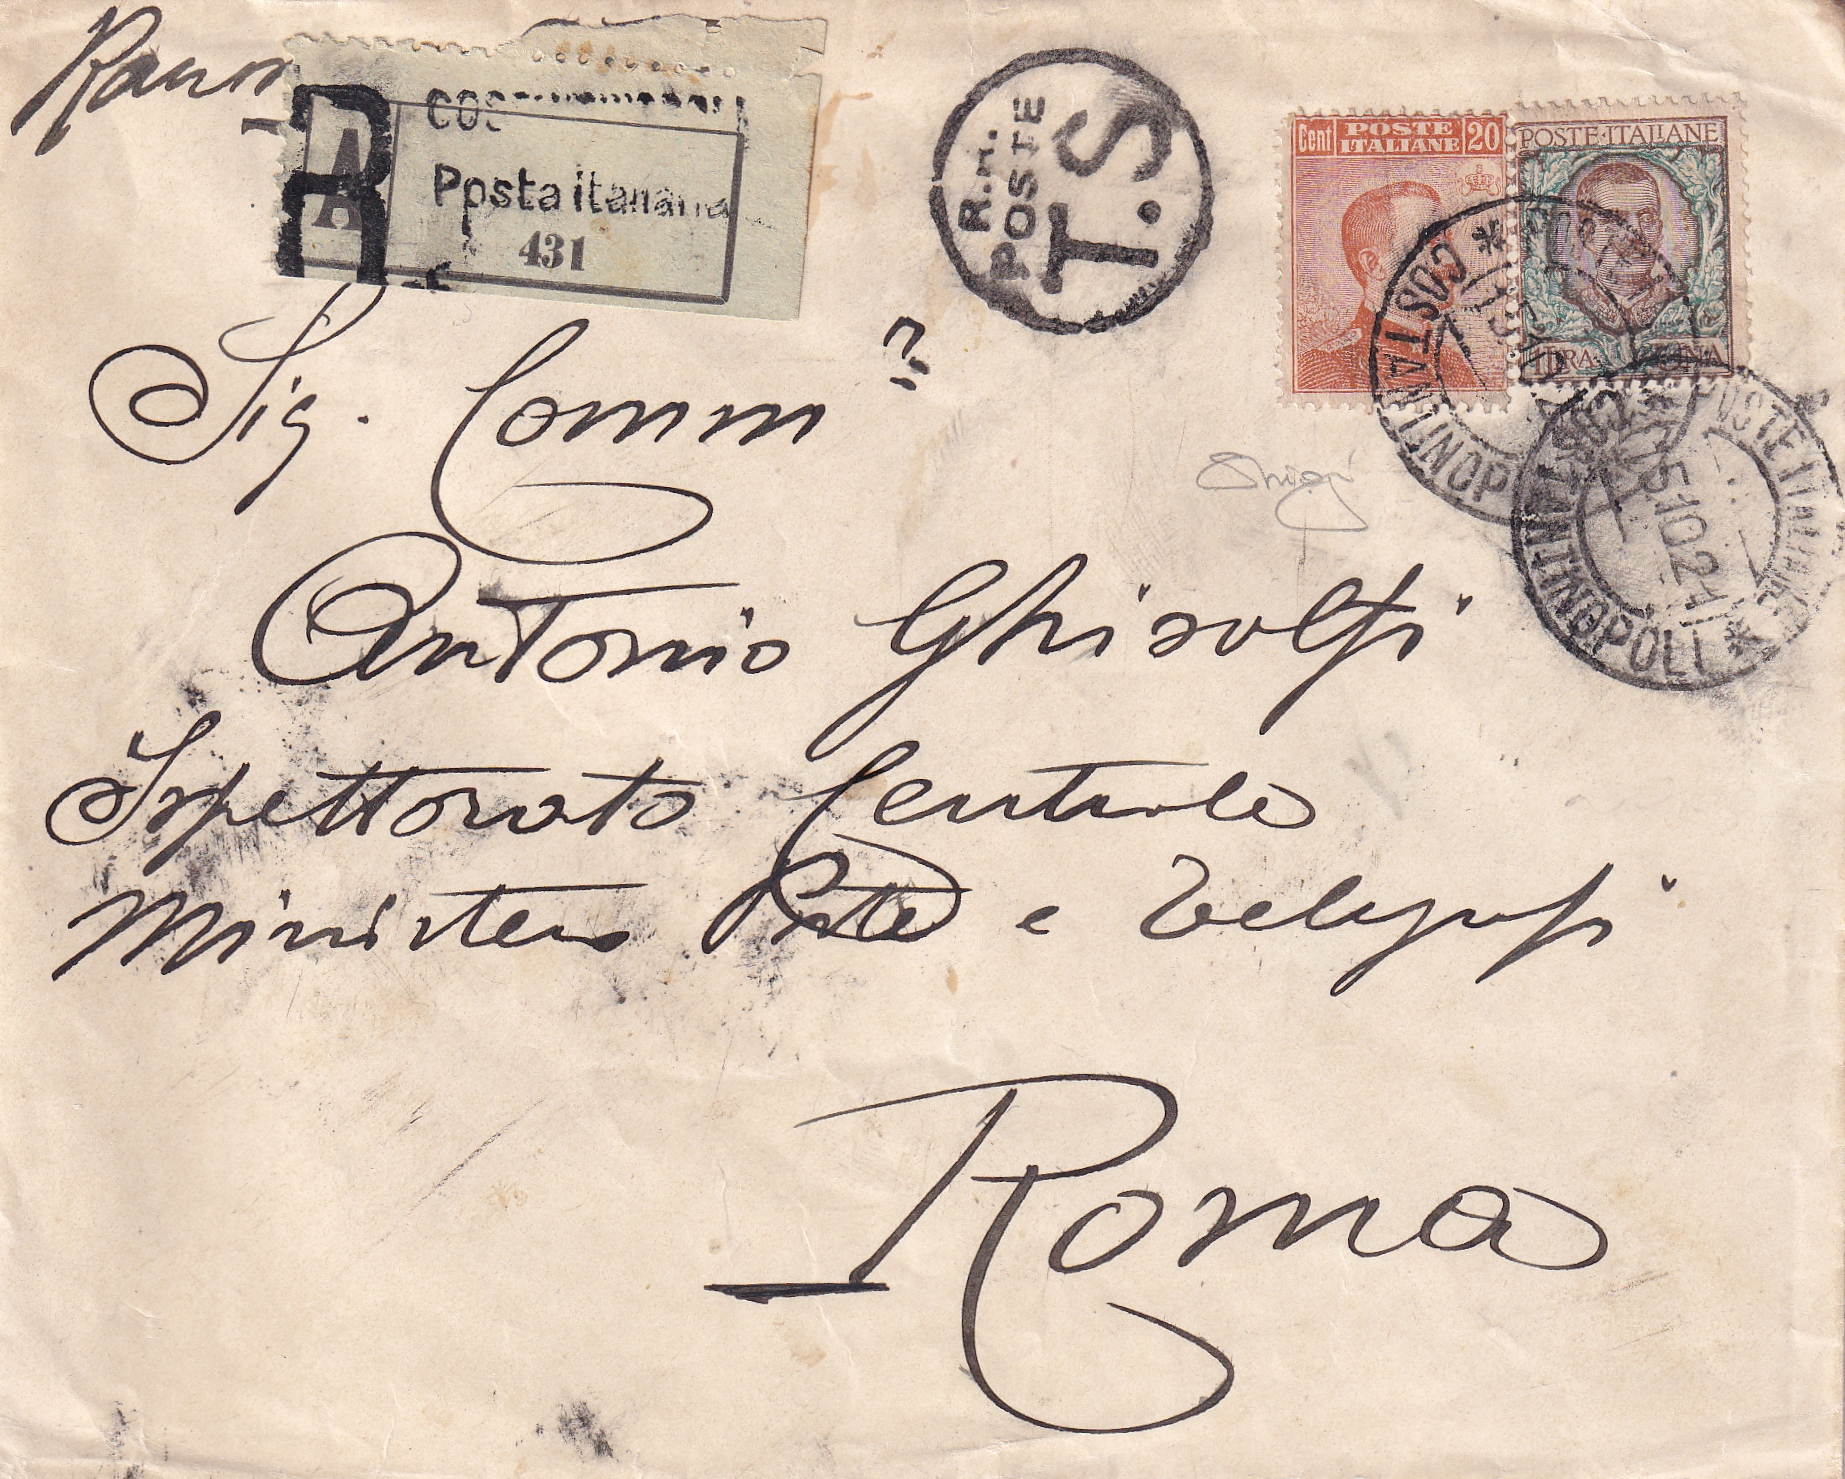 R
A
A
Posta italiana
431
R.R.
POSTE
T.S
Cent POSTE ITALIANE 20
POSTE·ITALIANE
* COSTANTINOPOLI
POSTE ITALIANE
15.10.21
COSTANTINOPOLI *
Sig. Comm
Antonio Ghisolfi
Ispettorato Centrale
Ministero Poste e Telegrafi
Roma